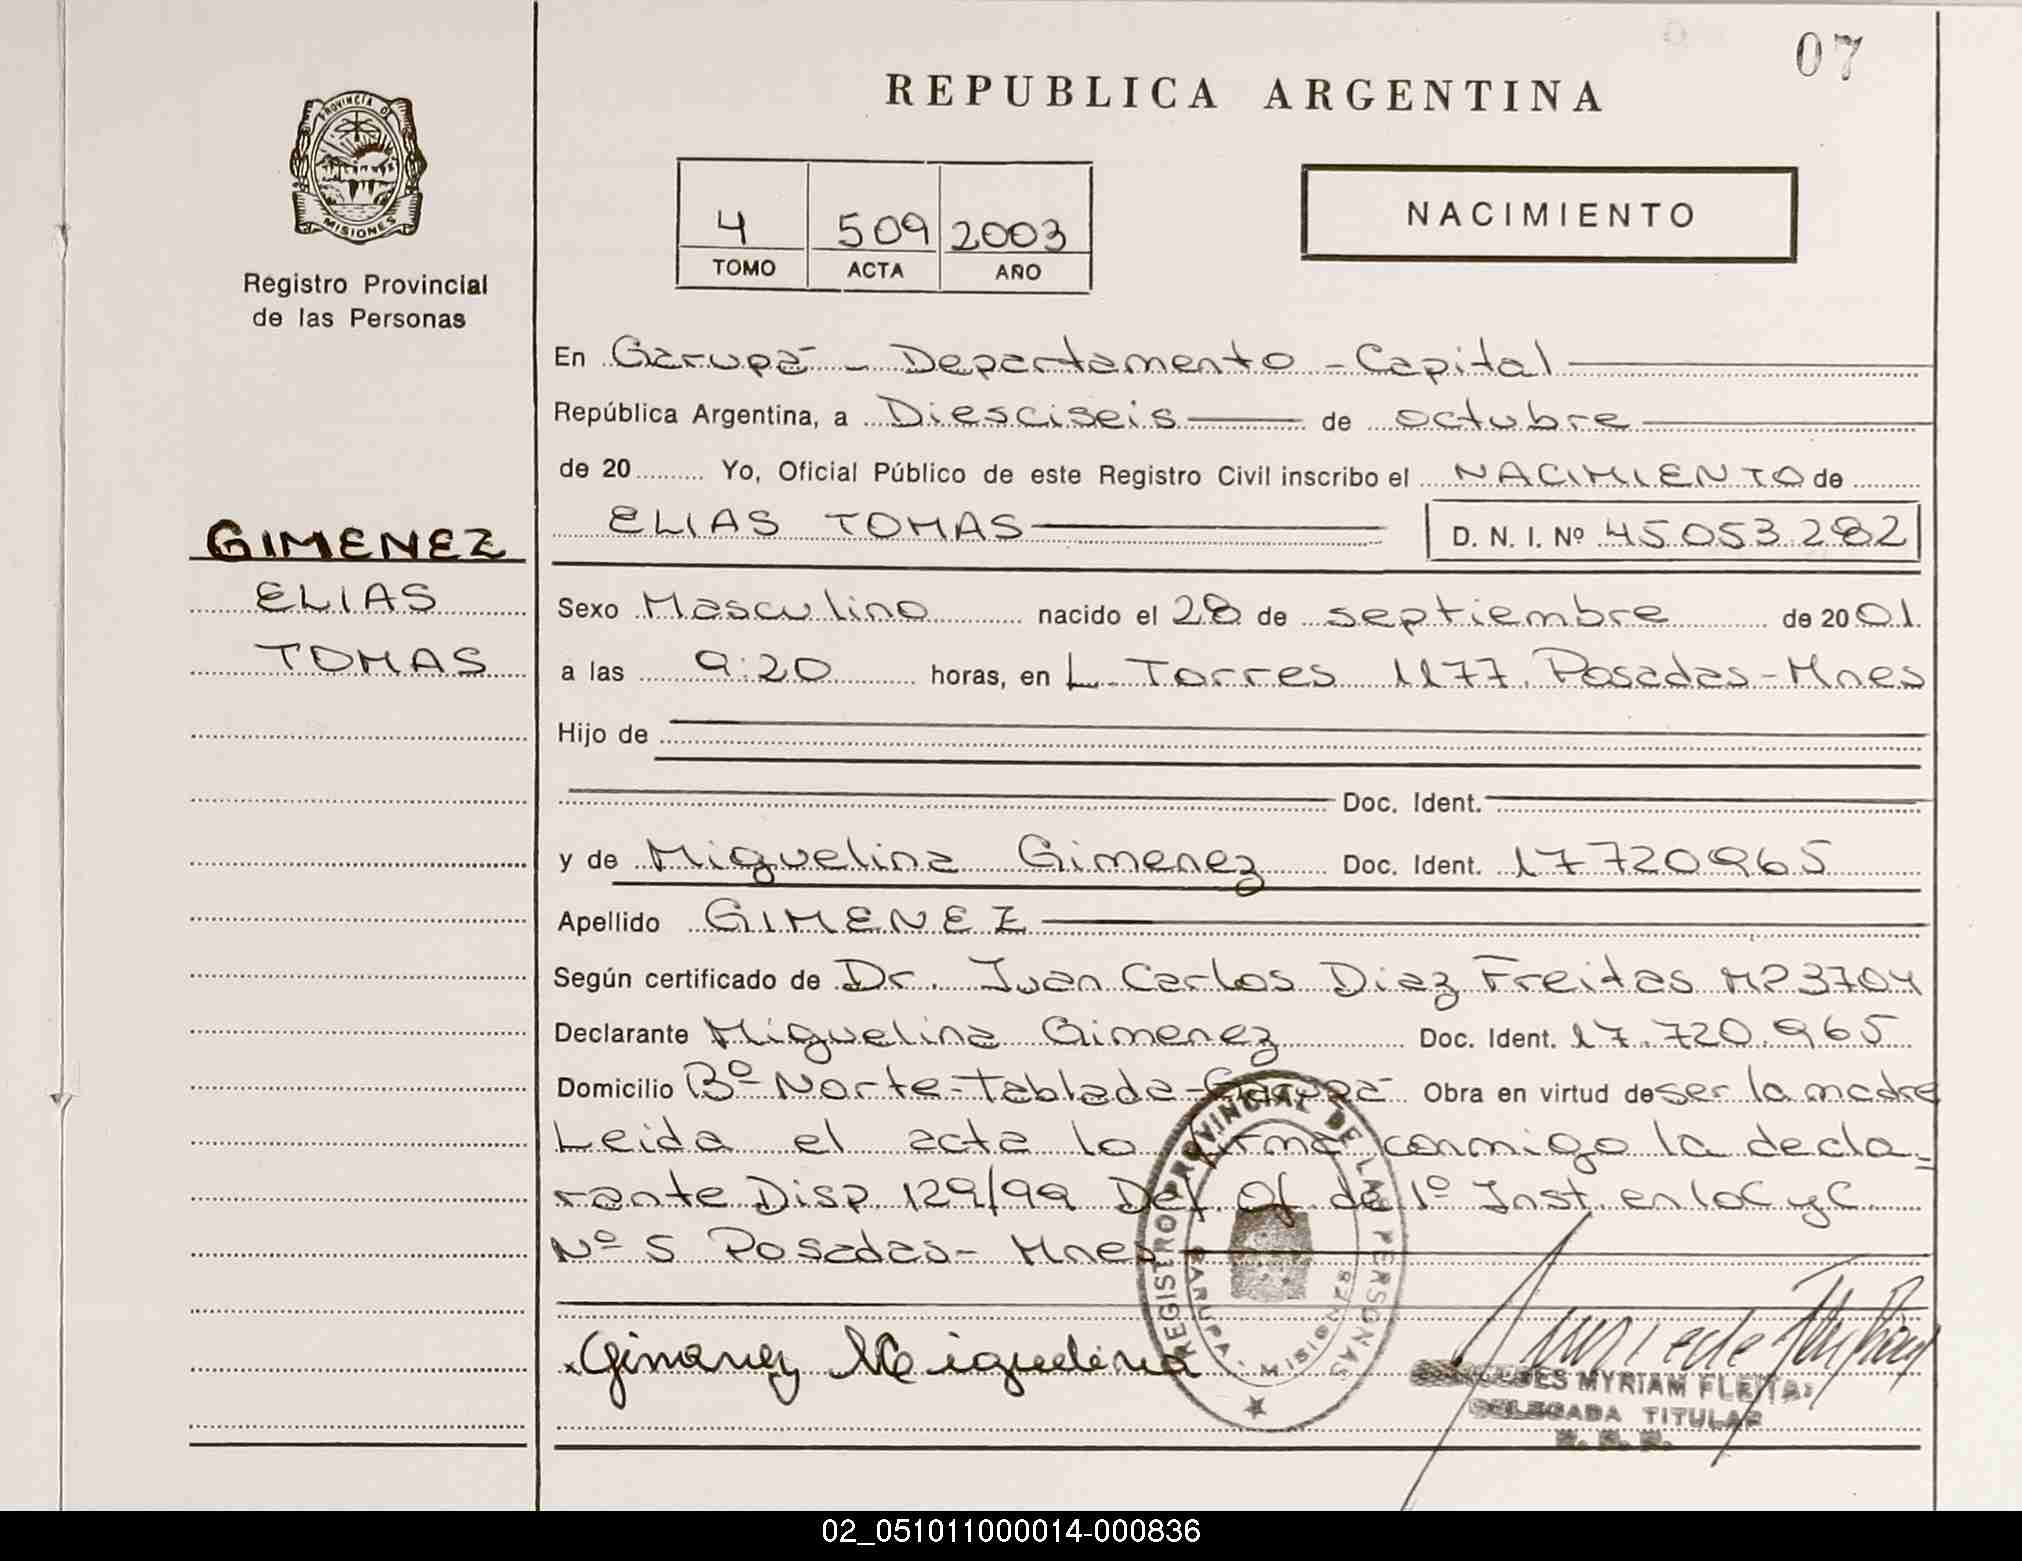 07
REPUBLICA ARGENTINA
PROVINCIA D
MISIONES
Registro Provincial
de las Personas
4 509 2003
TOMO ACTA AÑO
NACIMIENTO
En Garupá - Departamento - Capital
República Argentina, a Diesciseis de octubre
de 20 Yo, Oficial Público de este Registro Civil inscribo el NACIMIENTO de
ELIAS TOMAS D. N. I. Nº 45.053.282
GIMENEZ
ELIAS
TOMAS
Sexo Masculino nacido el 28 de septiembre de 2001.
a las 9:20 horas, en L. Torres 1177. Posadas-Mnes
Hijo de
Doc. Ident.
y de Miguelina Gimenez Doc. Ident. 17720965
Apellido GIMENEZ
Según certificado de Dr. Juan Carlos Diaz Freitas MP3704
Declarante Miguelina Gimenez Doc. Ident. 17.720.965
Domicilio Bº Norte-Tablada-Garupá Obra en virtud de ser la madre
Leida el acta lo firma conmigo la decla-
rante Disp. 129/99 Def. Of. de 1º Inst. en loCyC
Nº 5 Posadas- Mnes
Gimenez Miguelina
REGISTRO PROVINCIAL DE LAS PERSONAS
GARUPA - MISIONES
MYRIAM FLEITAS
DELEGADA TITULAR
02_051011000014-000836